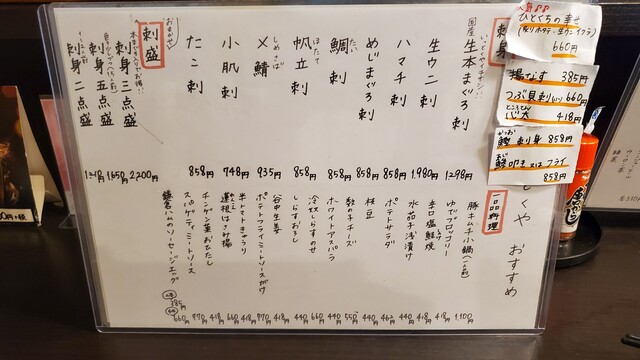 人気No.
ひとくちの幸せ
660円
揚げなす 385円
つぶ貝刺し 660円
ところてん
心太 418円
かつお
鰹 刺身 858円
鰹 叩き又はフライ
858円
くや おすすめ
刺身
国産
生本まぐろ刺 1,298円
生ウニ刺 1,980円
ハマチ刺 858円
めじまぐろ刺 858円
たい
鯛刺 858円
ほたて
帆立刺 858円
しめさば
〆鯖 935円
小肌刺 748円
たこ刺 858円
おまかせ!
刺盛
刺身三点盛 2,200円
刺身五点盛 1,650円
刺身二点盛 1,218円
一品料理
豚キムチ小鍋 1,100円
ゆでブロッコリー 418円
辛口塩鮭焼 418円
水茄子浅漬け 440円
ポテトサラダ 462円
枝豆 440円
数の子チーズ 550円
ホワイトアスパラ 660円
冷奴しらすのせ 440円
しらすおろし
谷中生姜 418円
ポテトフライミートソースがけ 770円
半トマトきゅうり 418円
蓮根はさみ揚 660円
チンゲン菜おひたし 418円
スパゲティミートソース 770円
鎌倉ハムのソーセージエッグ
660円